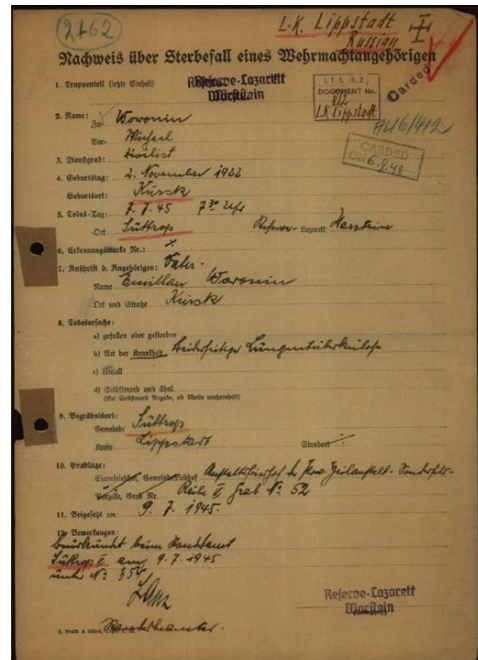 2762
L.K. Lippstadt
Russian
Nachweis über Sterbefall eines Wehrmachtangehörigen
Carded
1. Truppenteil (letzte Einheit)
Reserve-Lazarett
Warstein
I.T.S. (B.Z.)
DOCUMENT No.
L.K. Lippstadt
2. Name:
Zu- Woronin
Vor- Michael
CARDED
ON 6.9.48
3. Dienstgrad: Zivilist
4. Geburtstag: 2. November 1922
Geburtsort: Kursk
5. Todes-Tag: 7.7.45 7 30 Uhr
-Ort Suttrop Reserve-Lazarett: Warstein
6. Erkennungsmarke Nr.:
7. Anschrift d. Angehörigen: Vater.
Name Woronin
Ort und Straße Kursk
8. Todesursache:
a) gefallen oder gestorben
b) Art der Krankheit beiderseitige Lungentuberkulose
c) Unfall
d) Selbstmord und ähnl.
(Bei Selbstmord Angabe, ob Motiv unehrenhaft)
9. Begräbnisort:
Gemeinde Suttrop
Kreis Lippstadt Standort
10. Grablage:
Ehrenfriedhof, Gemeindefriedhof Anstaltsfriedhof der Prov. Heilanstalt
Parzelle, Grab Nr. Reihe V Grab No. 52
11. Beigesetzt am: 9. 7. 1945.
12. Bemerkungen:
beurkundet beim Standesamt
Suttrop am 9.7.1945
unter No. 354
Reserve-Lazarett
Warstein